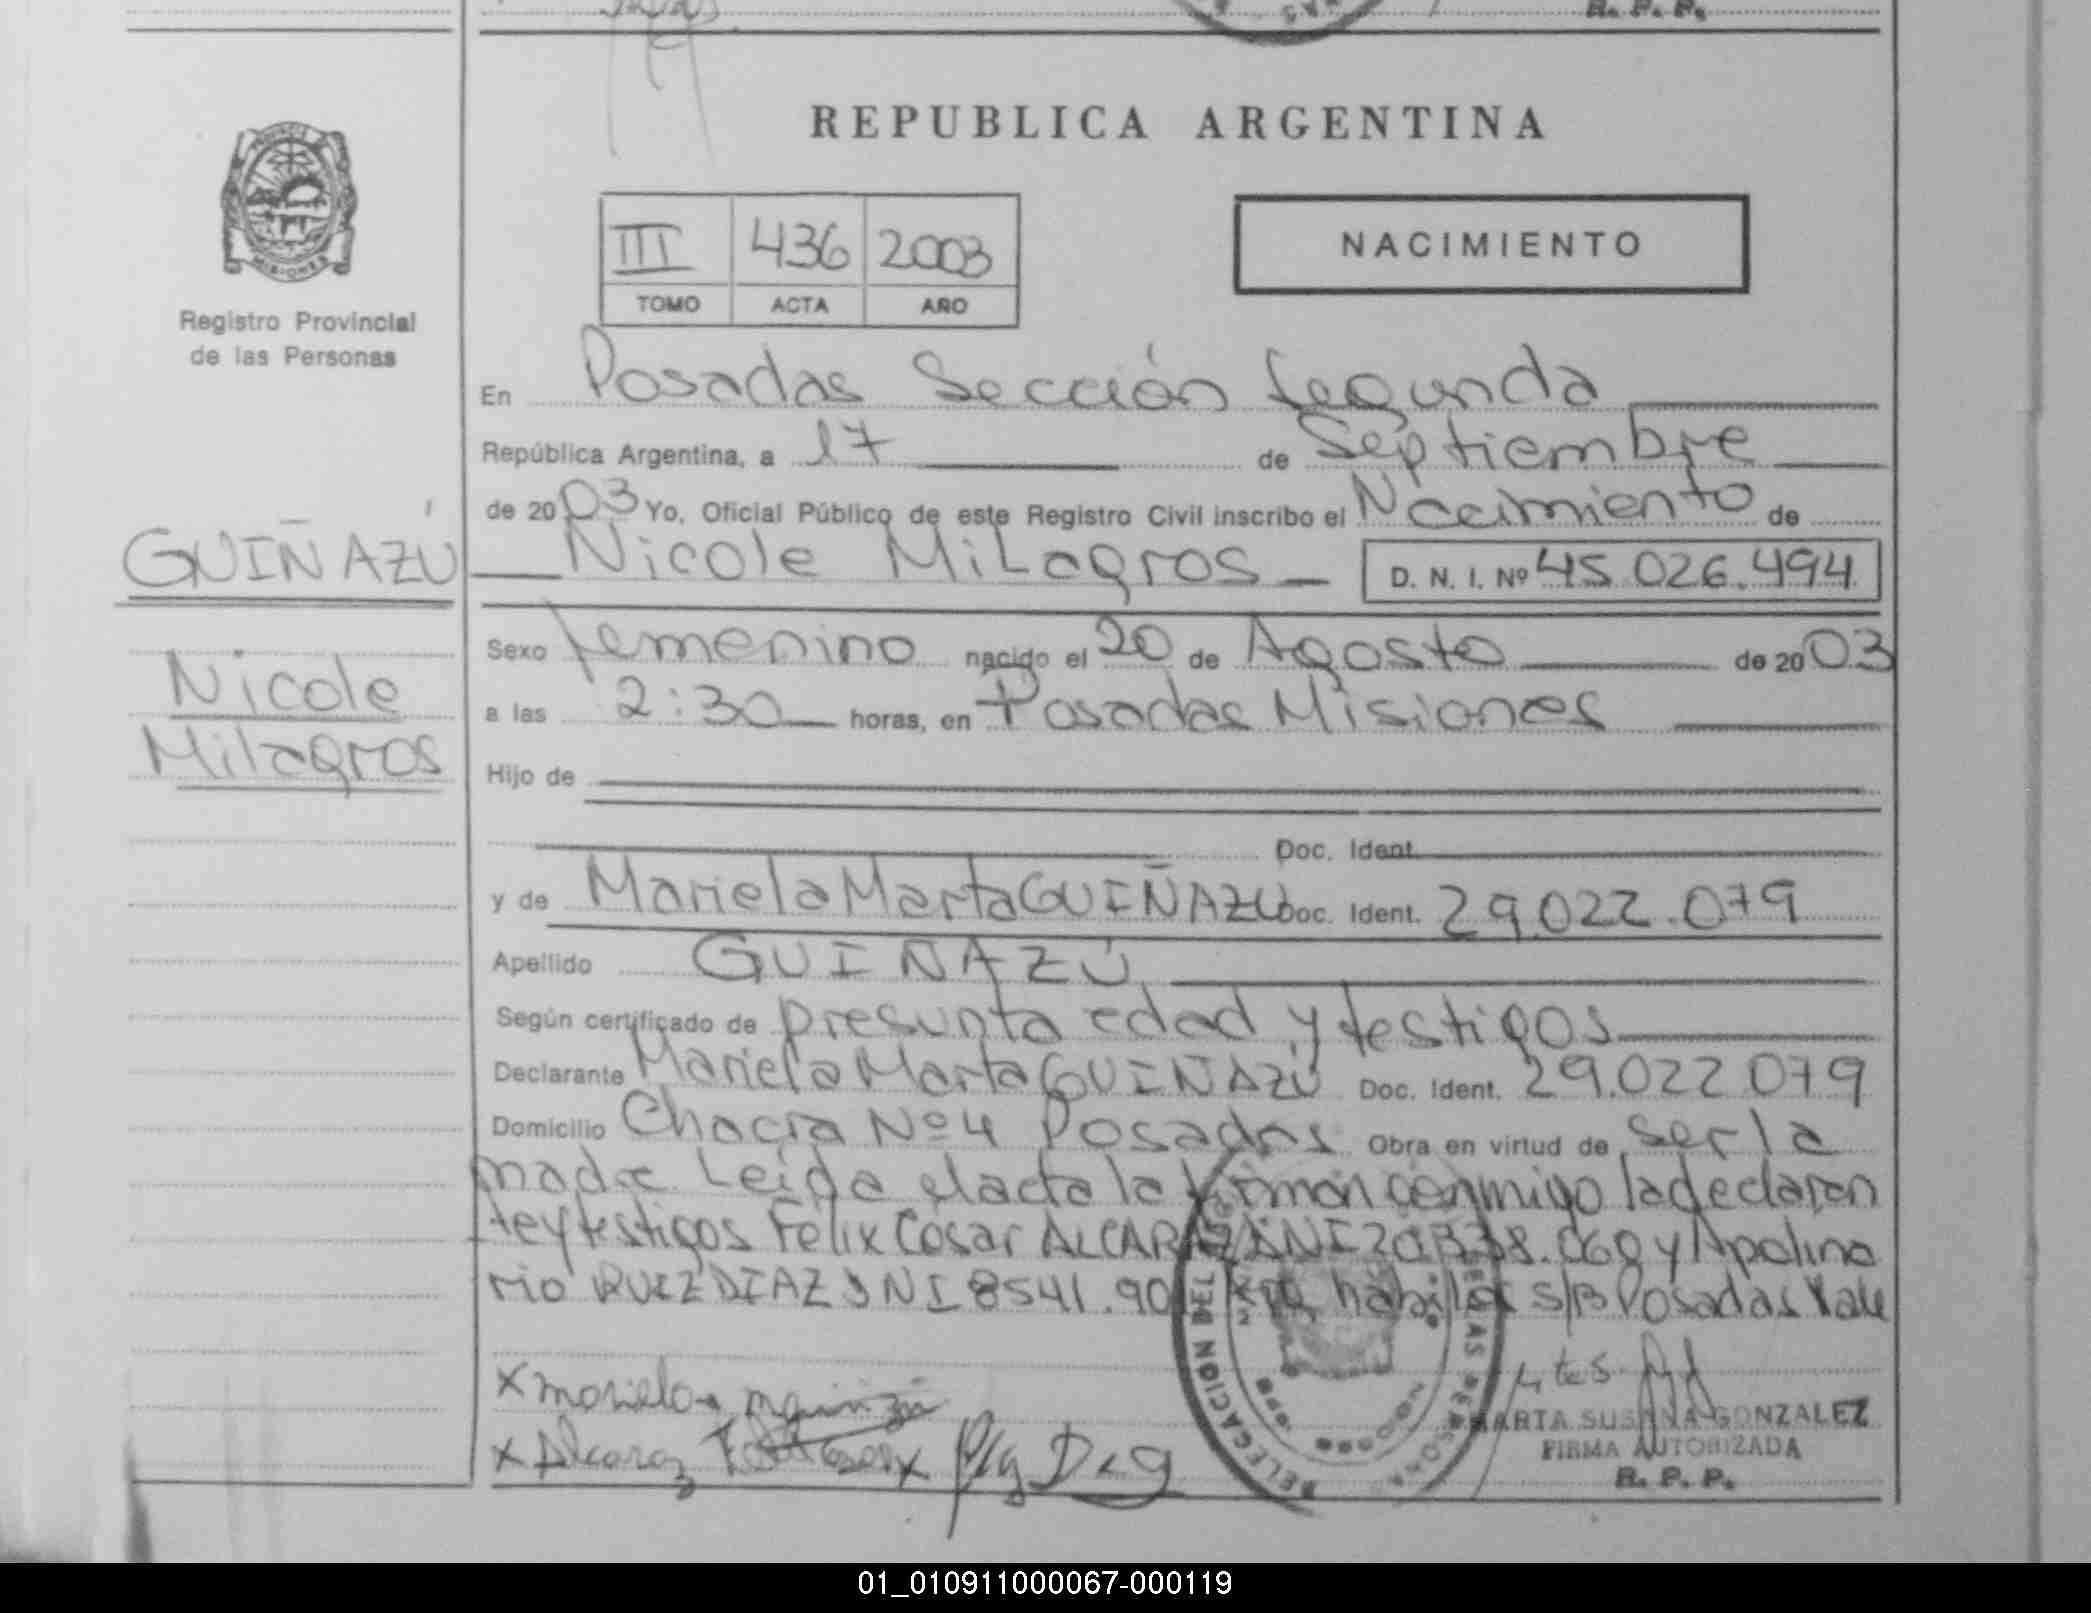 R. P. P.
REPUBLICA ARGENTINA
MISIONES
III 436 2003
TOMO ACTA AÑO
NACIMIENTO
Registro Provincial
de las Personas
En Posadas Sección Segunda
República Argentina, a 17 de Septiembre
de 2003 Yo, Oficial Público de este Registro Civil inscribo el Nacimiento de
GUIÑAZÚ
Nicole Milagros D. N. I. Nº 45.026.494
Sexo femenino nacido el 20 de Agosto de 2003
Nicole
a las 2:30 horas, en Posadas Misiones
Milagros
Hijo de
Doc. Ident.
y de Mariela Marta GUIÑAZU Doc. Ident. 29.022.079
Apellido GUIÑAZÚ
Según certificado de presunta edad y testigos
Declarante Mariela Marta GUIÑAZÚ Doc. Ident. 29.022.079
Domicilio Chacra Nº 4 Posadas Obra en virtud de ser la
madre Leida el acta la firman conmigo la declaran
te y testigos Felix Cesar ALCARAZ DNI y Apolina
rio RUIZ DIAZ DNI habiles s/B Posadas Vale
DELEGACION DEL
x Mariela M Guiñazú
x Alcaraz x
MARTA SUSANA GONZALEZ
FIRMA AUTORIZADA
R. P. P.
01_010911000067-000119